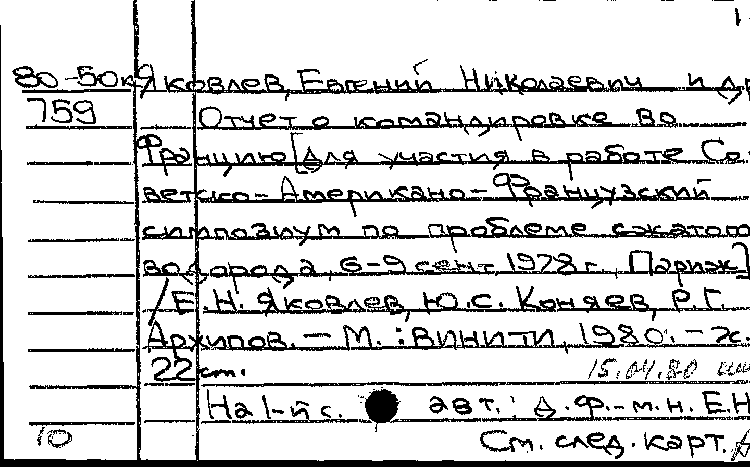 80-50к Яковлев, Евгений Николаевич и др
759 Отчет о командировке во
Францию [Для участия в работе Со-
ветско-Американо-Французский
симпозиум по проблеме сжатого
водорода, 6-9 сент. 1978 г., Париж]
/ Е.Н. Яковлев, Ю.С. Коняев, Р.Г.
Архипов. – М. : ВИНИТИ, 1980. –
22 ст.
15.04.80
На 1-й с. авт.: д.ф.-м.н. Е.Н
10 См. след. карт.